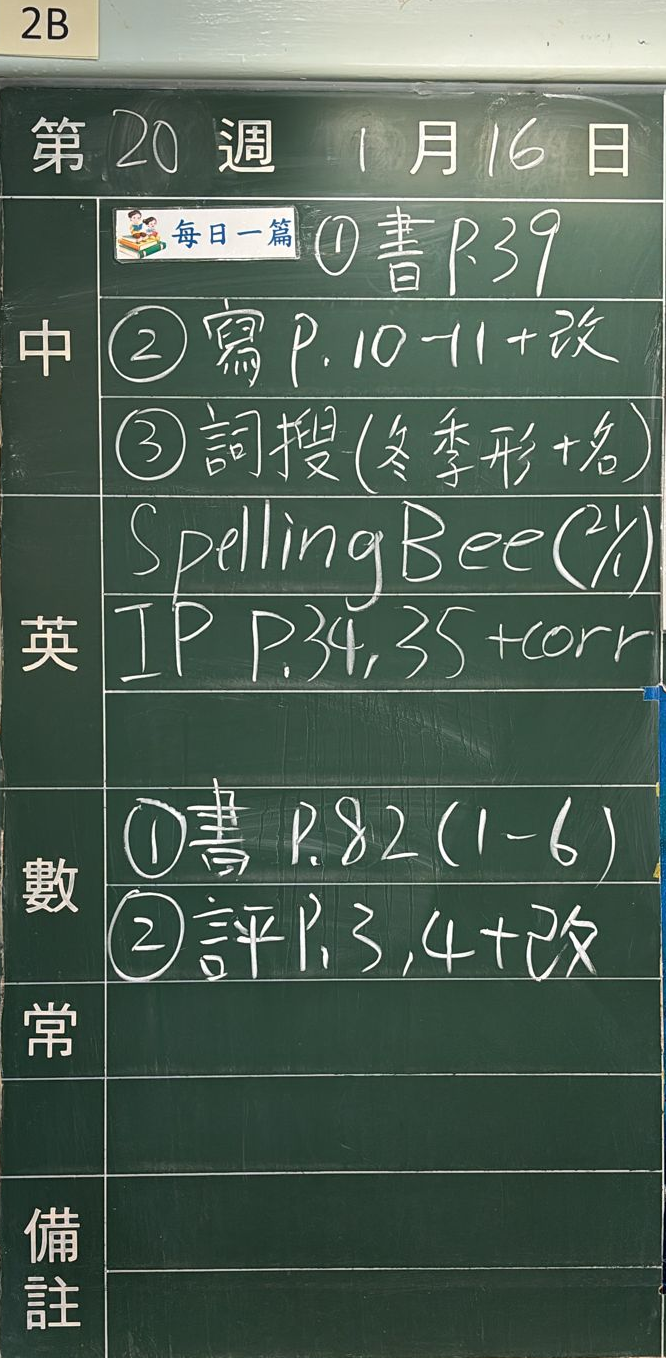 2B
第 20 週 1 月 16 日
中
每日一篇 ①書 P.39
②寫 P.10-11+改
③詞搜(冬季形+名)
英
Spelling Bee (21/1)
IP P.34, 35 +corr
數
①書 P.82 (1-6)
②評 P.3,4+改
常
備註